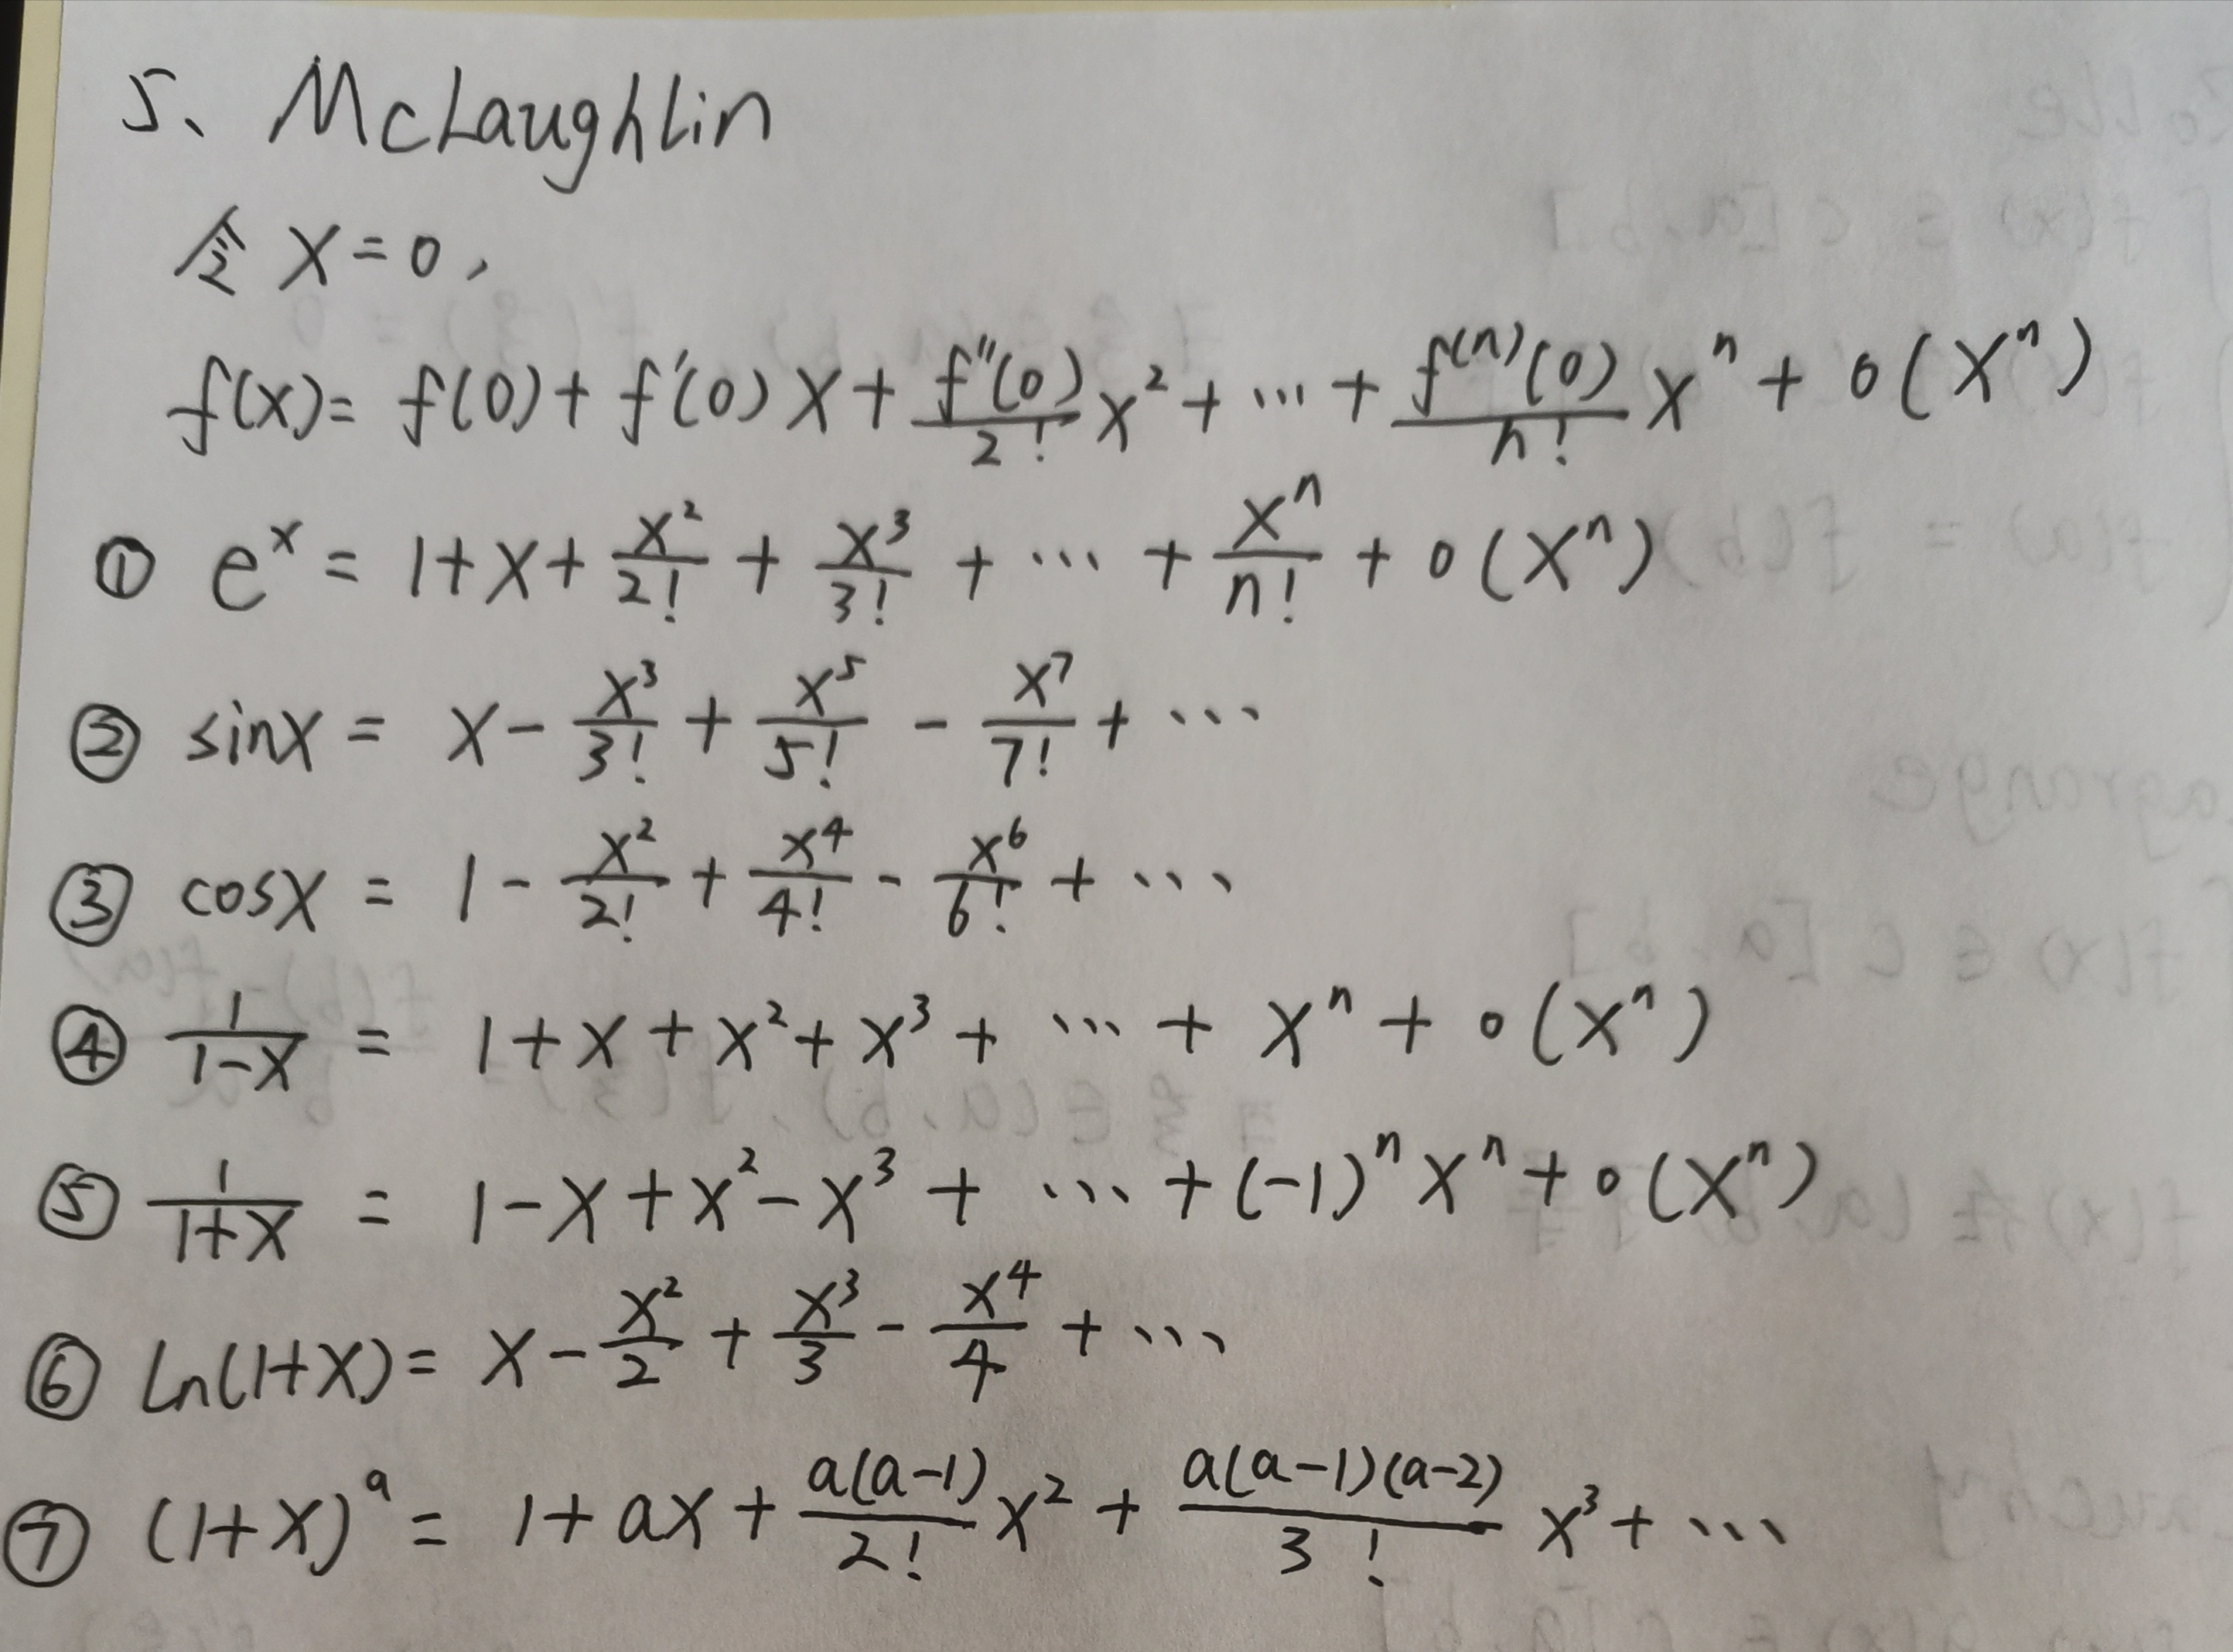 5、McLaughlin
令 x=0,
f(x)= f(0)+f'(0)x+\frac{f''(0)}{2!}x^2+…+\frac{f^{(n)}(0)}{n!}x^n+o(x^n)
① e^x = 1+x+\frac{x^2}{2!}+\frac{x^3}{3!}+…+\frac{x^n}{n!}+o(x^n)
② sinx = x-\frac{x^3}{3!}+\frac{x^5}{5!}-\frac{x^7}{7!}+…
③ cosx = 1-\frac{x^2}{2!}+\frac{x^4}{4!}-\frac{x^6}{6!}+…
④ \frac{1}{1-x} = 1+x+x^2+x^3+…+x^n+o(x^n)
⑤ \frac{1}{1+x} = 1-x+x^2-x^3+…+(-1)^n x^n+o(x^n)
⑥ ln(1+x)= x-\frac{x^2}{2}+\frac{x^3}{3}-\frac{x^4}{4}+…
⑦ (1+x)^a = 1+ax+\frac{a(a-1)}{2!}x^2+\frac{a(a-1)(a-2)}{3!}x^3+…